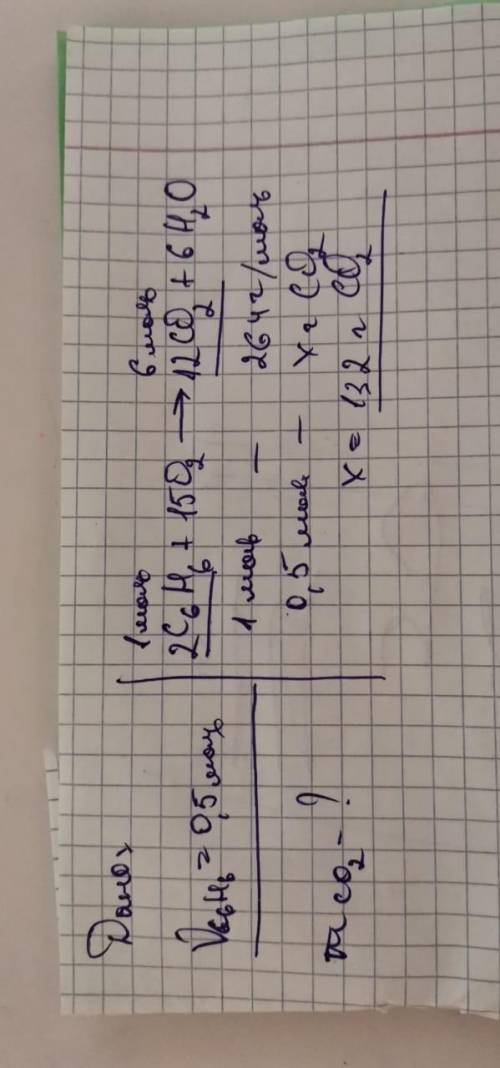 Дано:
νC₆H₆ = 0,5 моль
m CO₂ - ?
1 моль 6 моль
2C₆H₆ + 15O₂ → 12CO₂ + 6H₂O
1 моль – 264 г/моль
0,5 моль – x г CO₂
x = 132 г CO₂